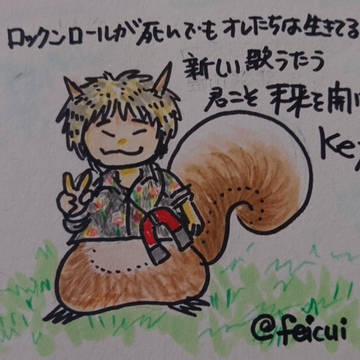 ロックンロールが死んでもオレたちは生きてる
新しい歌うたう
君こそ未来を開
Ke
@feicui